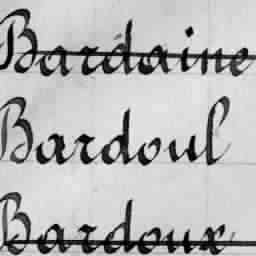 Bardaine
Bardoul
Bardoux